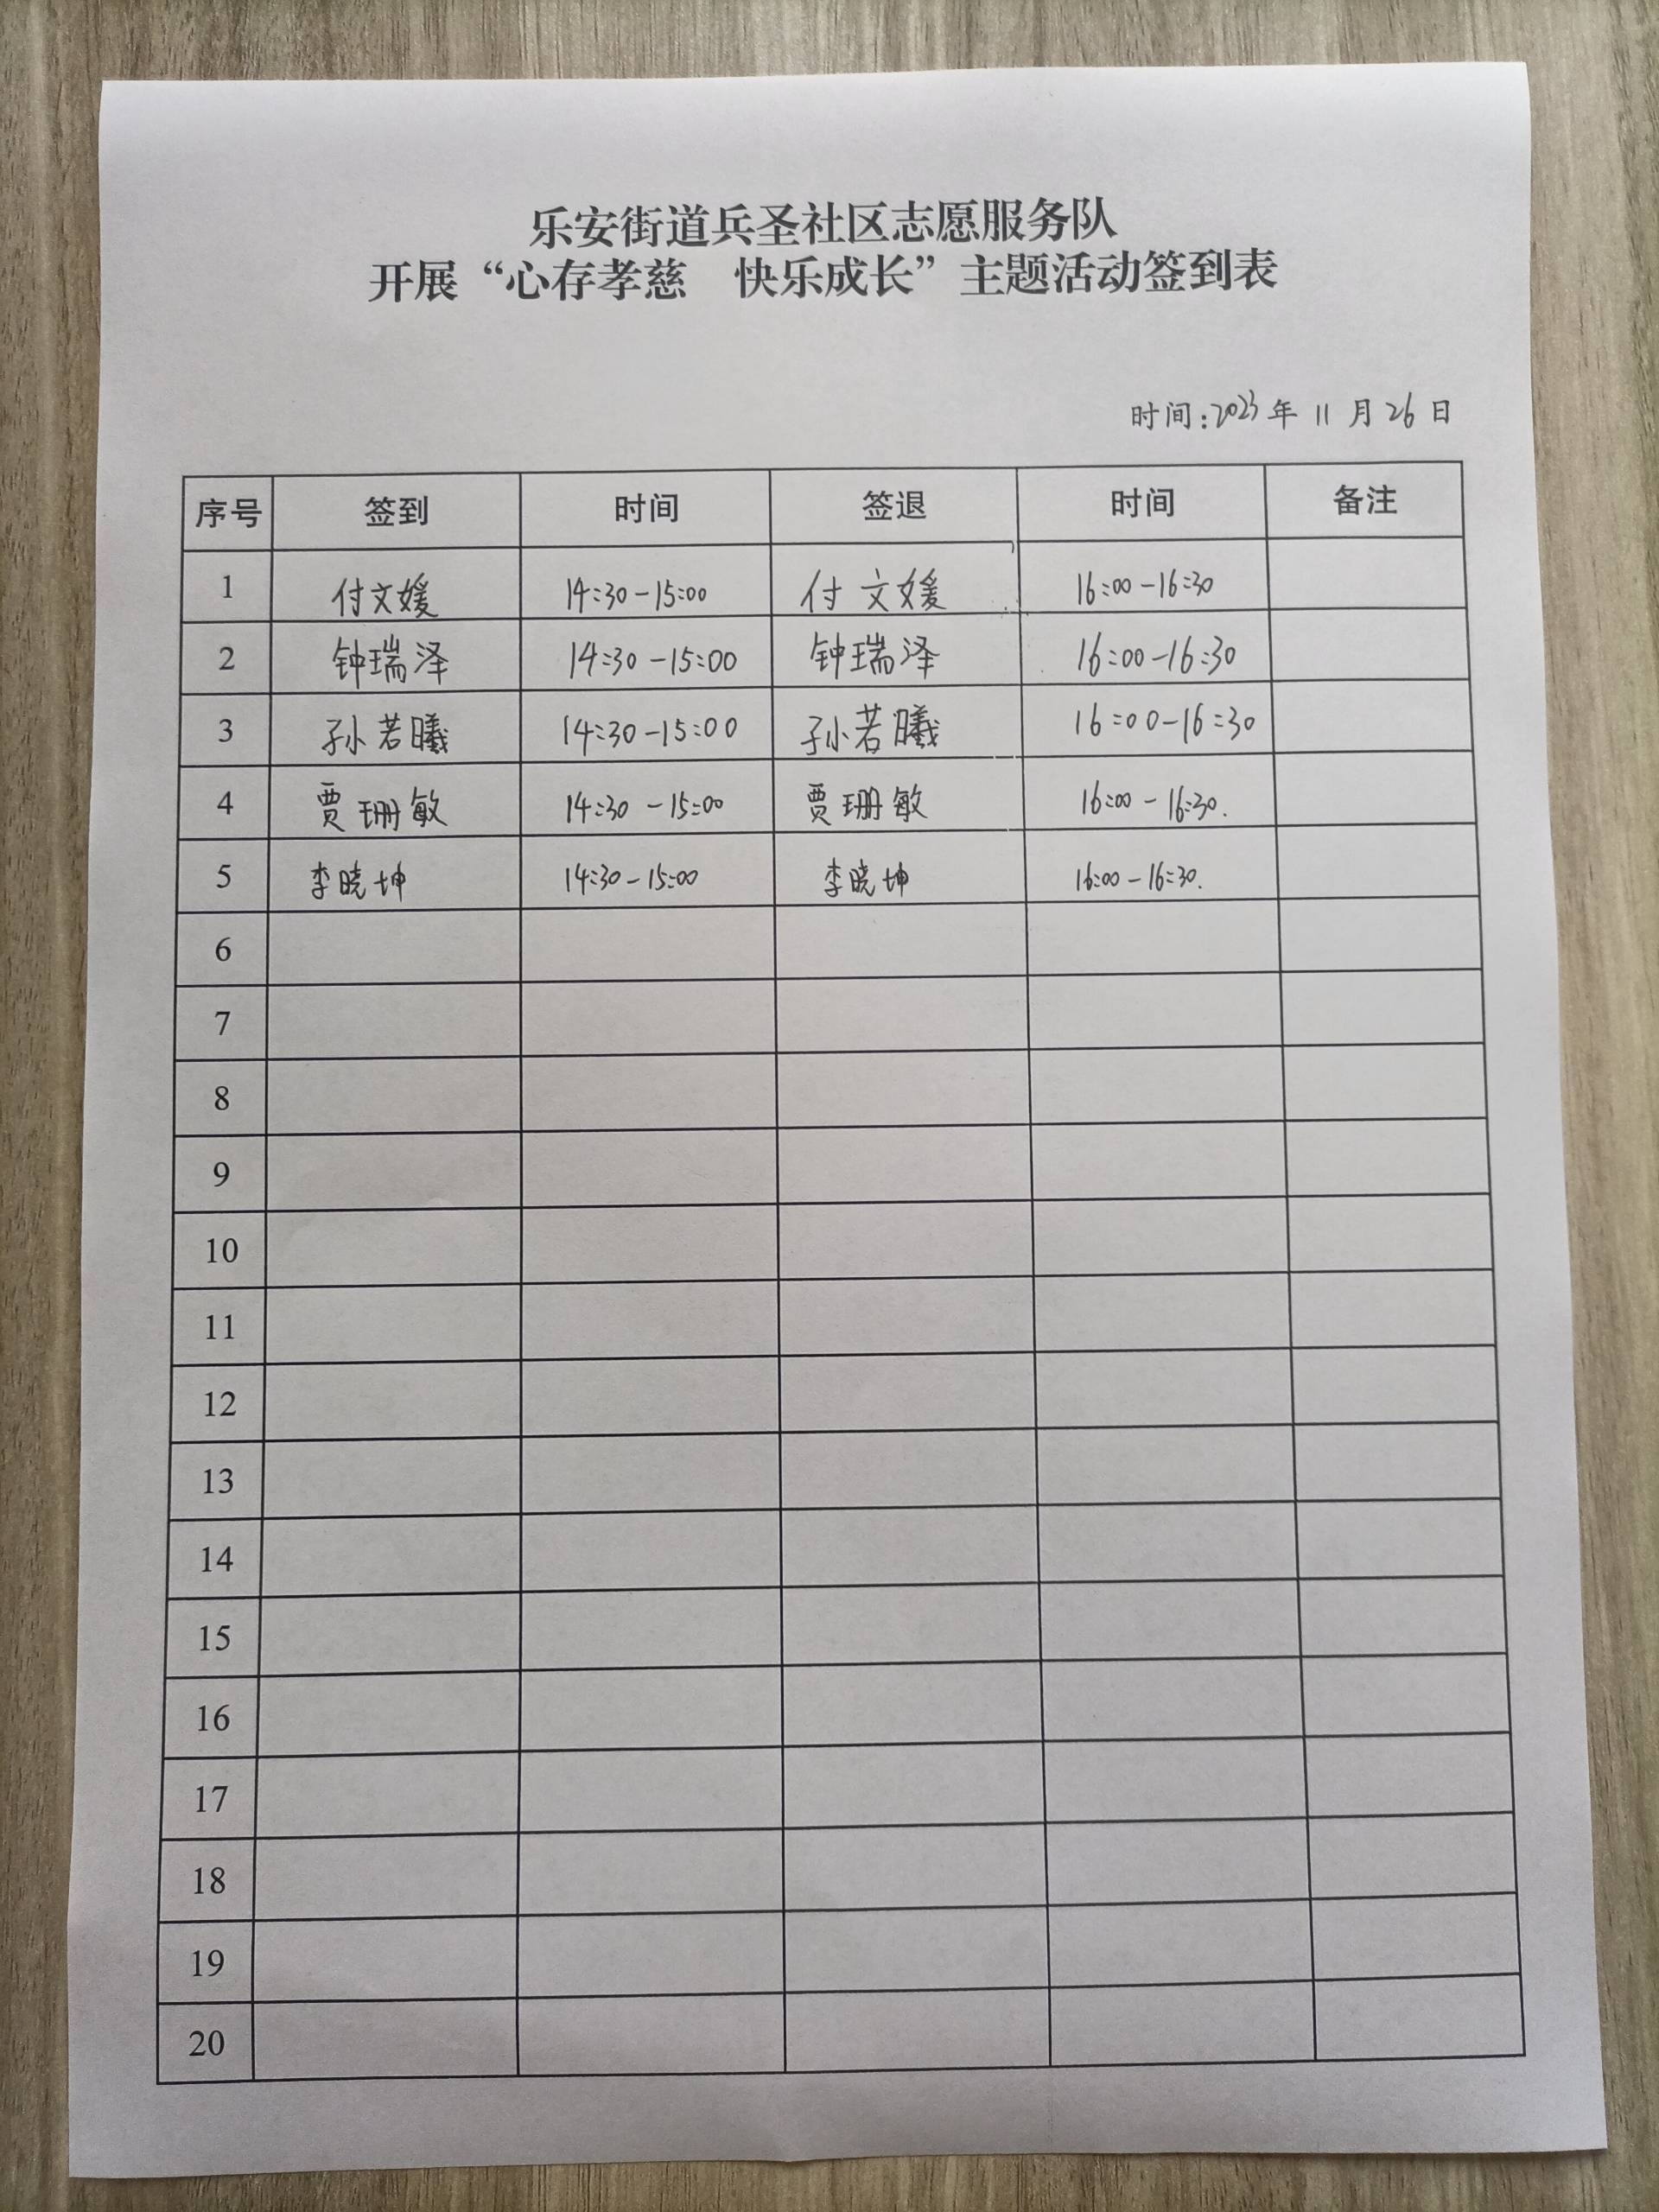 乐安街道兵圣社区志愿服务队
开展“心存孝慈 快乐成长”主题活动签到表
时间:2023年 11 月 26 日
序号 签到 时间 签退 时间 备注
1 付文媛 14:30-15:00 付文媛 16:00-16:30
2 钟瑞泽 14:30-15:00 钟瑞泽 16:00-16:30
3 孙若曦 14:30-15:00 孙若曦 16:00-16:30
4 贾珊敏 14:30-15:00 贾珊敏 16:00-16:30.
5 李晓坤 14:30-15:00 李晓坤 16:00-16:30.
6
7
8
9
10
11
12
13
14
15
16
17
18
19
20